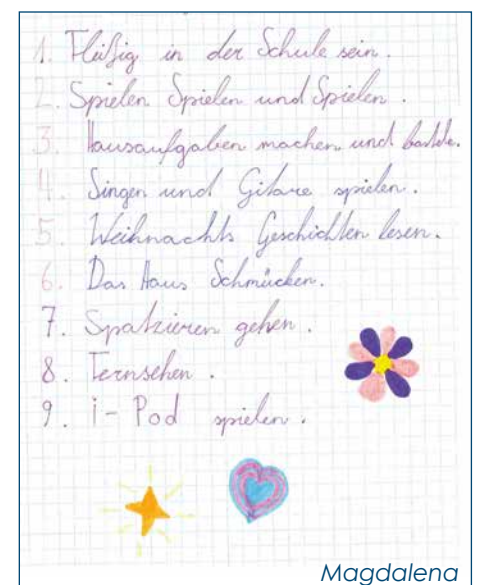 1. Fleißig in der Schule sein.
2. Spielen Spielen und Spielen.
3. Hausaufgaben machen und
4. Singen und Gitare spielen.
5. Weihnachts Geschichten lesen.
6. Das Haus Schmücken.
7. Spatzieren gehen.
8. Fernsehen.
9. i-Pod spielen.
Magdalena